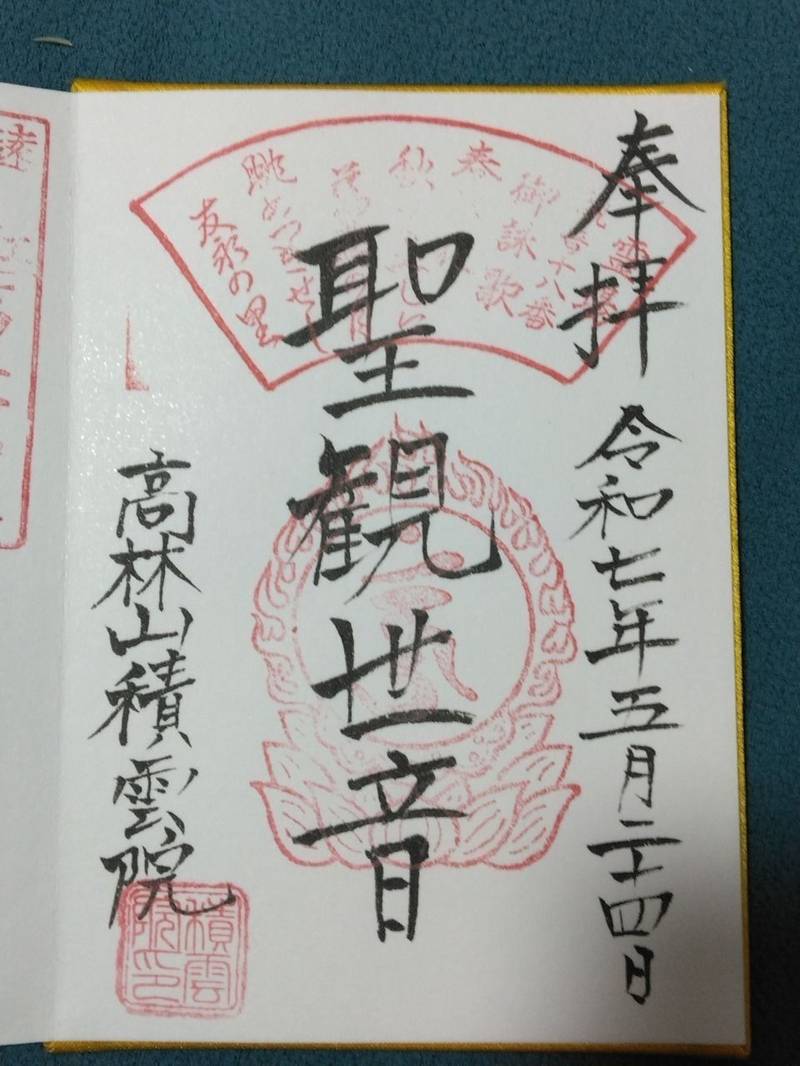 奉拝
令和七年五月二十四日
聖観世音
高林山積雲院
十八番
御詠歌
春
秋
眺
友永の里
積雲
院印